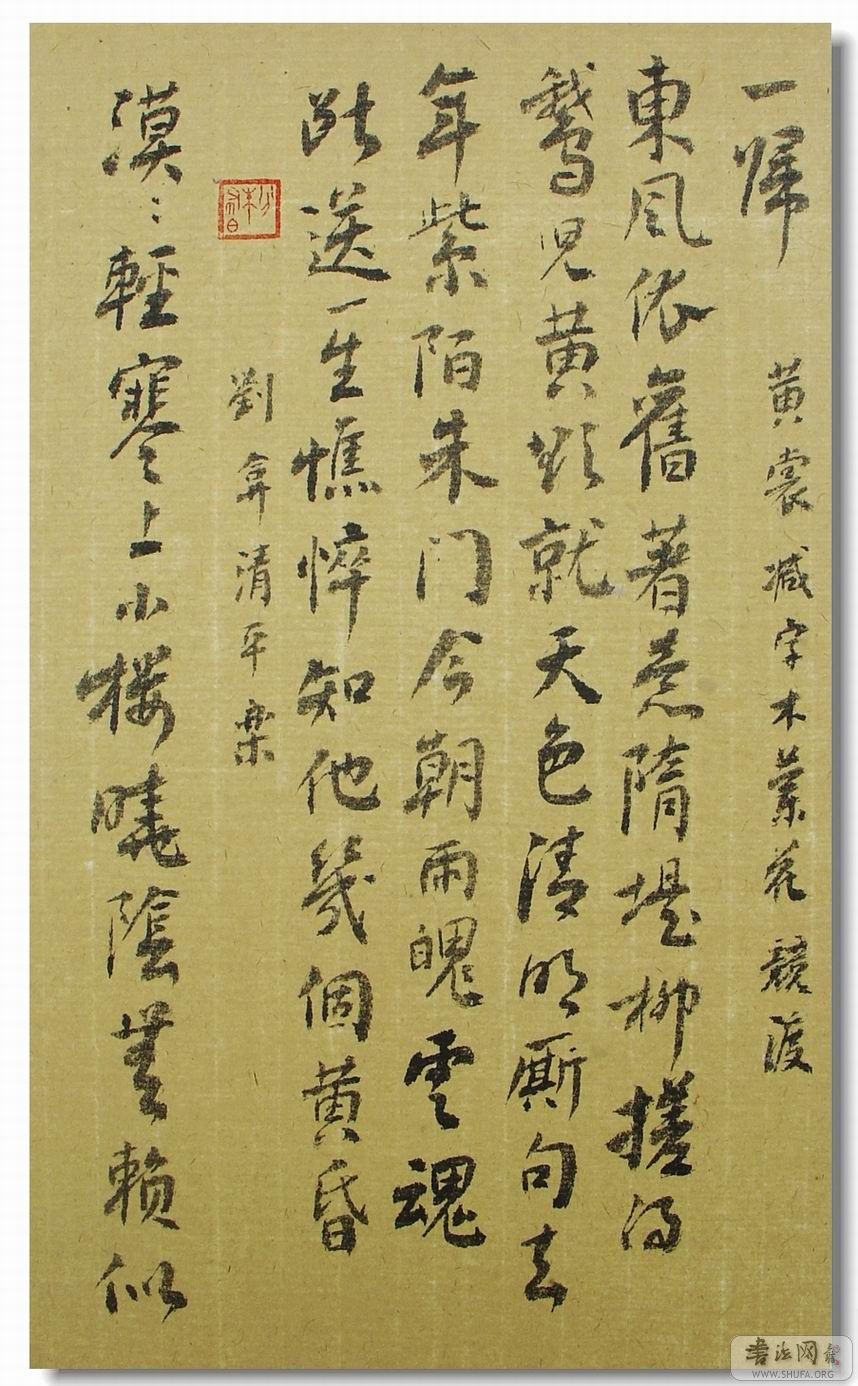 一歸
黄裳减字木蘭花競渡
東風依舊著意隋堤柳搓得
鵝兒黄欲就天色清明厮句去
年紫陌朱门今朝雨魄雲魂
斷送一生憔悴知他幾個黄昏
劉弇清平樂
漠〻輕寒上小樓曉陰無賴似
書法网
WWW.SHUFA.ORG